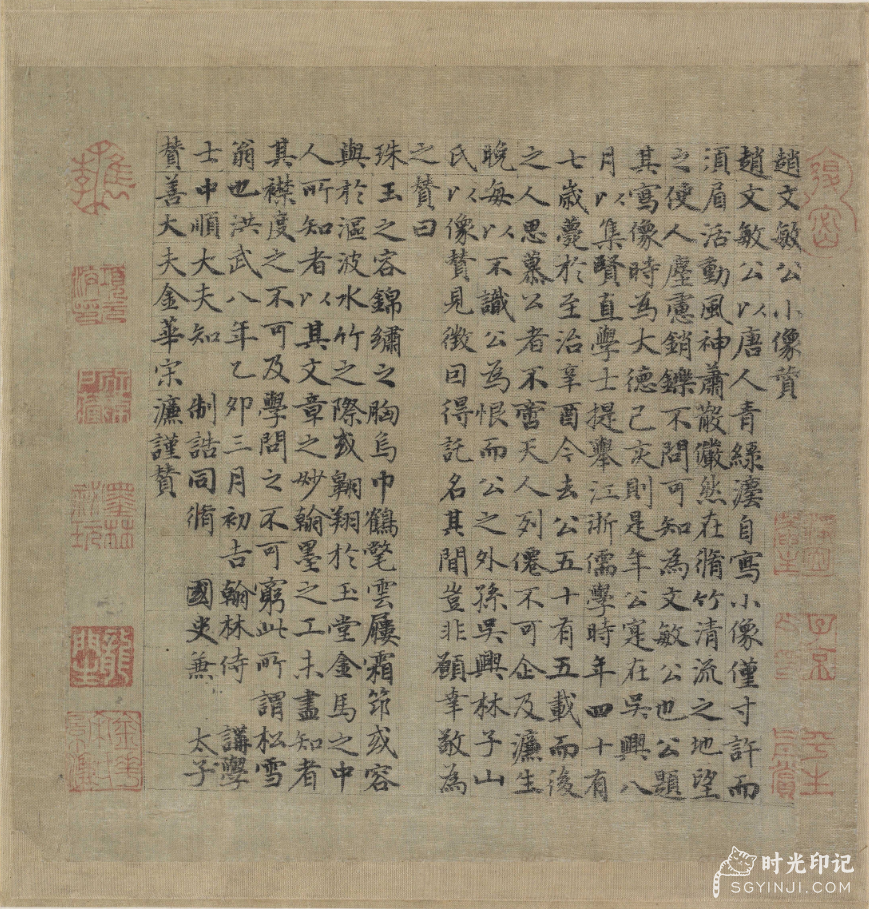 趙文敏公小像贊
趙文敏公以唐人青綠灋自寫小像僅寸許而
須眉活動風神蕭散儼然在脩竹清流之地望
之使人塵慮銷鑠不問可知為文敏公也公題
其寫像時為大德己亥則是年公寔在吳興八
月以集賢直學士提舉江浙儒學時年四十有
七歲薨於至治辛酉今去公五十有五載而後
之人思慕公者不啻天人列僊不可企及濂生
晚每以不識公為恨而公之外孫吳興林子山
氏以像贊見徵曰得託名其間豈非願幸敬為
之贊曰
珠玉之容錦繡之胸烏巾鶴氅雲屨霜筇或容
與於漚波水竹之際或翺翔於玉堂金馬之中
人所知者以其文章之妙翰墨之工未盡知者
其襟度之不可及學問之不可窮此所謂松雪
翁也洪武八年乙卯三月初吉翰林侍 講學
士中順大夫知 制誥同脩 國史兼 太子
贊善大夫金華宋濂謹贊
時光印記
SGYINJI.COM